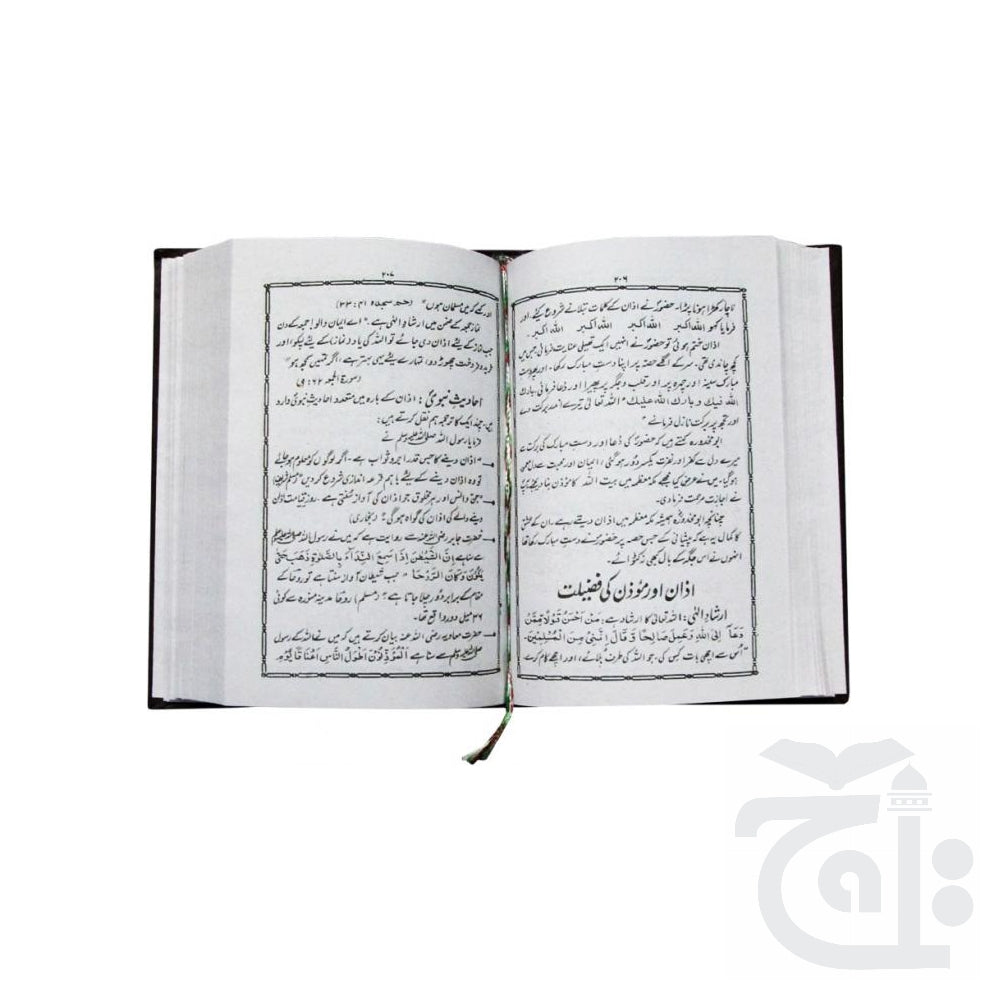 ۲۰۶
ناچار کھڑا ہونا پڑا۔ حضورؐ نے اذان کے کلمات بتلانے شروع کیئے اور
فرمایا کہو اللہ اکبر اللہ اکبر اللہ اکبر اللہ اکبر۔
اذان ختم ہوئی تو حضورؐ نے انہیں ایک تھیلی عنایت فرمائی جس میں
کچھ چاندی تھی۔ سر کے اگلے حصہ پر اپنا دست مبارک رکھا۔ اور پھر دست
مبارک سینہ اور چہرہ پر اور قلب و جگر پر پھیرا اور دعا فرمائی بارک
اللہ فیک و بارک اللہ علیک "اللہ تعالیٰ تیرے اندر برکت دے
اور تجھ پر برکت نازل فرمائے"
ابو محذورہ کہتے ہیں کہ حضورؐ کی دعا اور دست مبارک کی برکت سے
میرے دل سے کفر اور نفرت یکسر دُور ہو گئی، ایمان اور محبت سے دل معمور
ہو گیا۔ میں نے عرض کیا مجھے مکہ معظمہ میں بیت اللہ کا مؤذن بنا دیجئے۔ آپؐ
نے اجازت مرحمت فرما دی۔
چنانچہ ابو محذورہؓ ہمیشہ مکہ معظمہ میں اذان دیتے رہے۔ ان کے عشق
کا کمال یہ ہے کہ پیشانی کے جس حصہ پر حضورؐ نے دست مبارک رکھا تھا
انھوں نے اس جگہ کے بال کبھی نہ کٹوائے۔
اذان اور مؤذن کی فضیلت
ارشادِ الٰہی: اللہ تعالیٰ کا ارشاد ہے: مَنْ اَحْسَنُ قَوْلًا مِّمَّنْ
دَعَا اِلَى اللّٰهِ وَعَمِلَ صَالِحًا وَّ قَالَ اِنَّنِیْ مِنَ الْمُسْلِمِیْنَ۔
"اُس سے اچھی بات کس کی، جو اللہ کی طرف بُلائے، اور اچھے کام کرے
۲۰۷
اور کہے کہ میں مسلمان ہوں" (حٰمٓ سجدہ ۴۱: ۳۳)
نماز جمعہ کے ضمن میں ارشادِ الٰہی ہے۔ "اے ایمان والو! جمعہ کے دن
جب نماز کے لیئے اذان دی جائے تو اللہ کی یاد و نماز کے لیئے لپکو اور
خرید و فروخت چھوڑ دو، تمہارے لیئے یہی بہتر ہے، اگر تمہیں کچھ سمجھ ہو"
(سورۃ الجمعہ ۶۲: ۹)
احادیث نبویؐ: اذان کے بارہ میں متعدد احادیث نبویؐ وارد
ہیں، چند ایک کا ترجمہ ہم نقل کرتے ہیں:
فرمایا رسول اللہ صلی اللہ علیہ وسلم نے
"اذان دینے کا جس قدر اجر و ثواب ہے۔ اگر لوگوں کو معلوم ہو جائے
تو وہ اذان دینے کے لیئے باہم قرعہ اندازی شروع کر دیں"
"جن و انس اور ہر مخلوق جو اذان کی آواز سُنتی ہے۔ روز قیامت اذان
دینے والے کی اذان کی گواہ ہو گی" (بخاری)
حضرت جابر رضی اللہ عنہ سے روایت ہے کہ میں نے رسول اللہ صلی اللہ علیہ وسلم
سے سنا ہے اِنَّ الشَّیْطٰنَ اِذَا سَمِعَ النِّدَآءَ بِالصَّلٰوةِ ذَهَبَ حَتّٰی
یَكُوْنَ مَكَانَ الرَّوْحَا "جب شیطان آواز سنتا ہے تو روحا کے
مقام کے برابر دُور چلا جاتا ہے" (مسلم) روحا مدینہ منورہ سے کوئی
۳۶ میل دور واقع تھا۔
حضرت معاویہ رضی اللہ عنہ بیان کرتے ہیں کہ میں نے اللہ کے رسول
صلی اللہ علیہ وسلم سے سنا ہے اَلْمُؤَذِّنُوْنَ اَطْوَلُ النَّاسِ اَعْنَاقًا یَّوْمَ
تاج